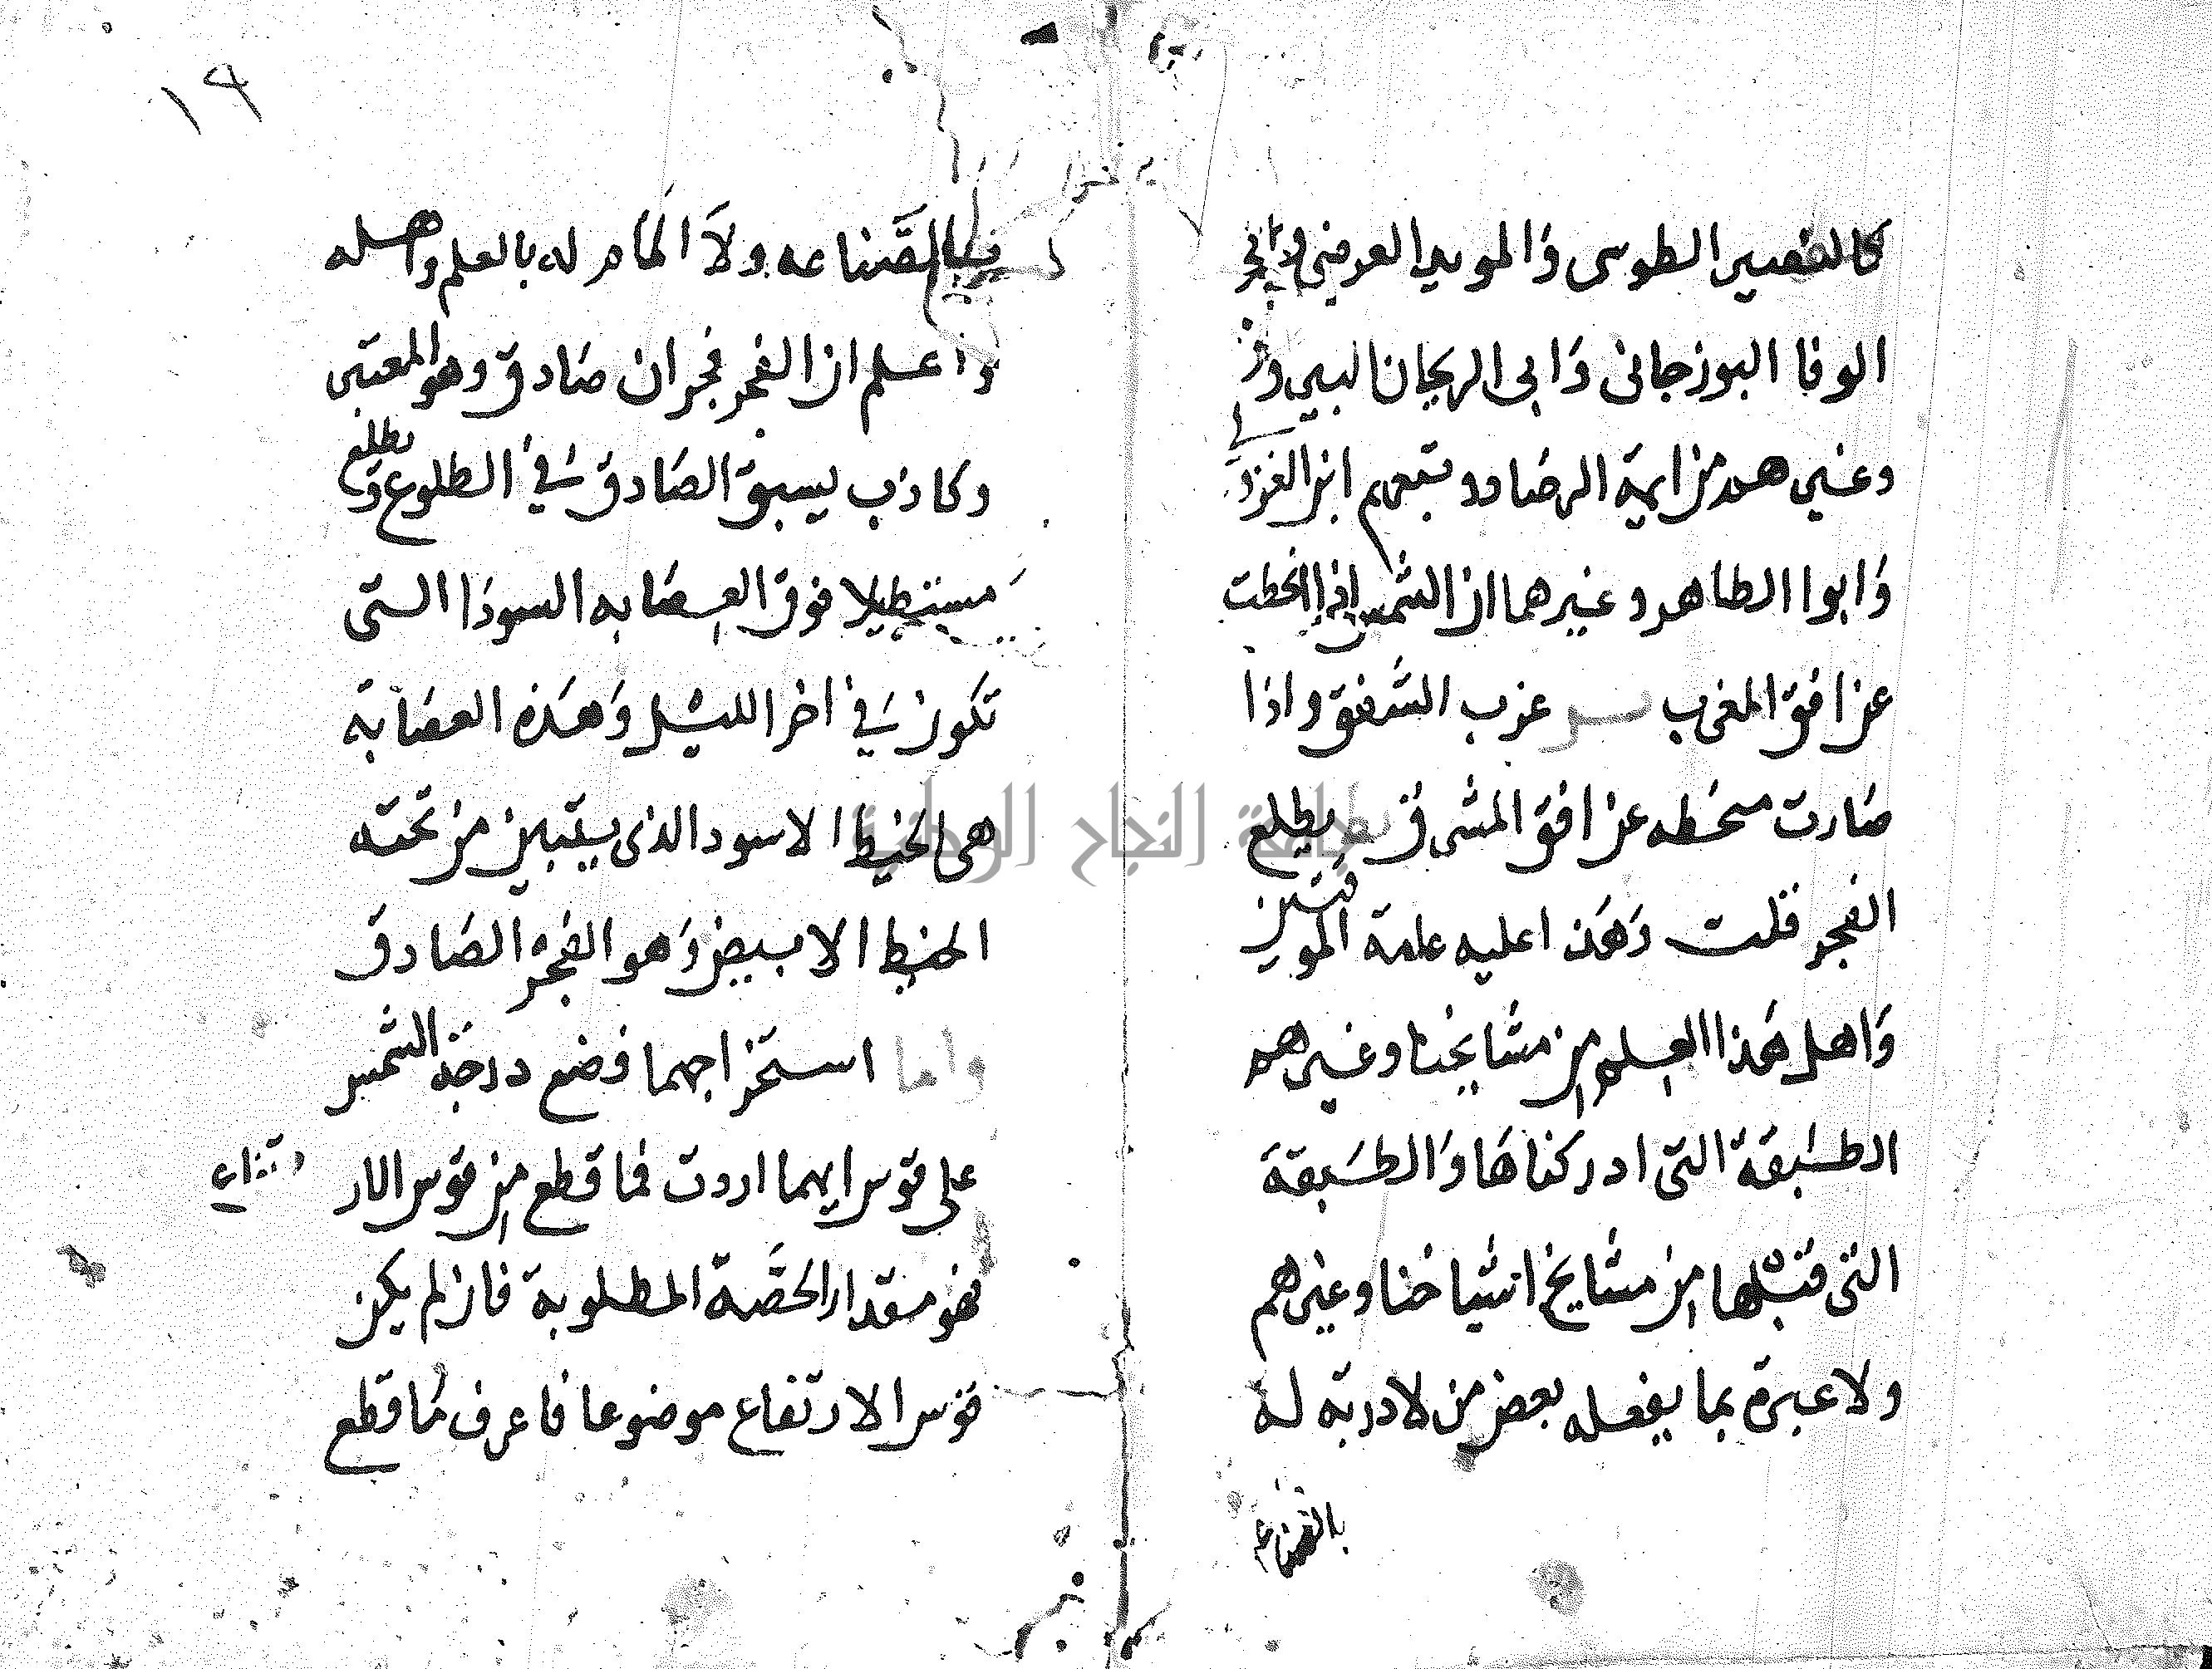 كالنصير الطوسى والمويد العرضى وابى
الوفا البوزجانى وابى الريحان البيروني
وغيرهم من ايمة الرصاد وتبعهم ابن الغزولي
وابوا الطاهر وغيرهما ان الشمس اذا انحطت
عن افق المغرب عرب الشفق واذا
صارت منحطه عن افق المشرق يطلع
الفجر قلت وهذا عليه عامة الموقتين
واهل هذا العلم من مشايخنا وغيرهم
الطبقة التى ادركناها والطبقة
التى قبلها من مشايخ اشياخنا وغيرهم
ولا عبرة بما يفعله بعض من لا دربة له
بالصناعه
١٩
بالصناعه ولا المام له بالعلم واهله
واعلم ان الفجر فجران صادق وهو المعتبر
وكاذب يسبق الصادق في الطلوع ويطلع
مستطيلا فوق العصابه السودا التى
تكون في اخر الليل وهذه العصابة
هى الخيط الاسود الذى يتبين من تحته
الخيط الابيض وهو الفجر الصادق
واما استخراجهما فضع درجة الشمس
على قوس ايهما اردت فما قطع من قوس الار
تفاع
فهو مقدار الحصة المطلوبة فان لم يكن
قوس الارتفاع موضوعا فاعرف ما قطع
جامعة النجاح الوطنية